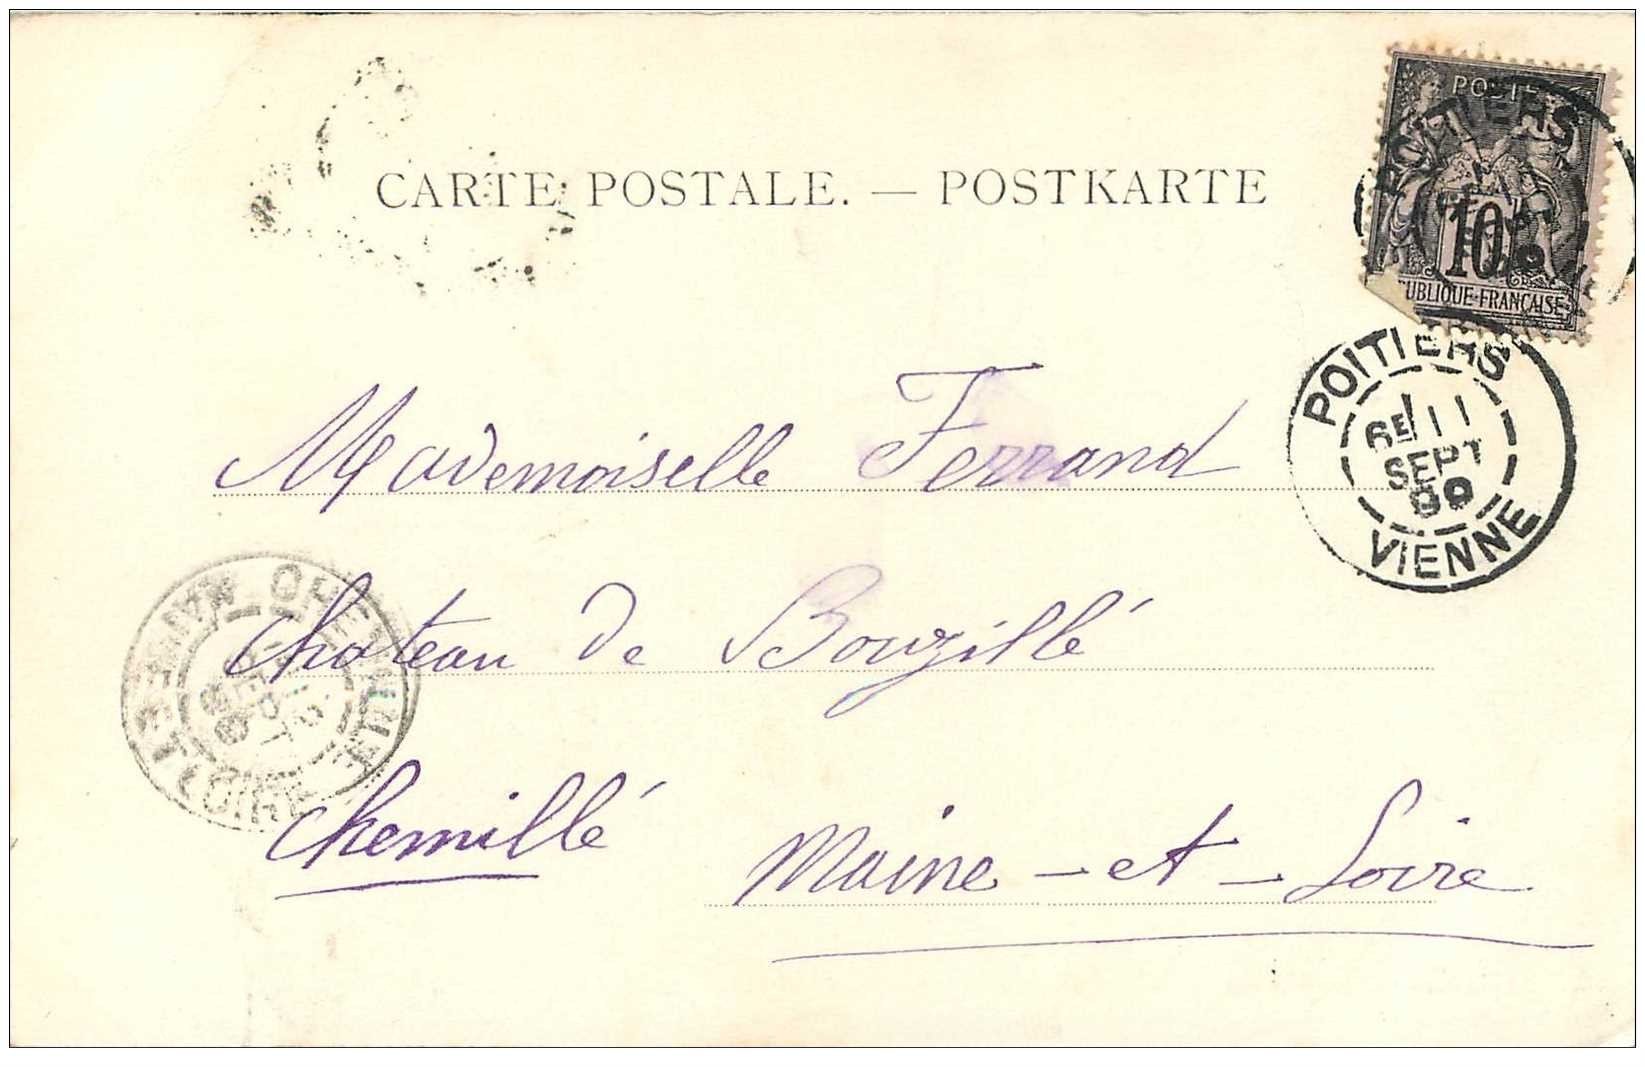 CARTE POSTALE. — POSTKARTE
POSTE
10
UBLIQUE FRANÇAISE
POITIERS
POITIERS
6E 11
SEPT
99
VIENNE
Mademoiselle Ferrand
Château de Bouzillé
Chemillé
Maine-et-Loire
CHEMILLÉ
SEPT
99
MAINE ET LOIRE